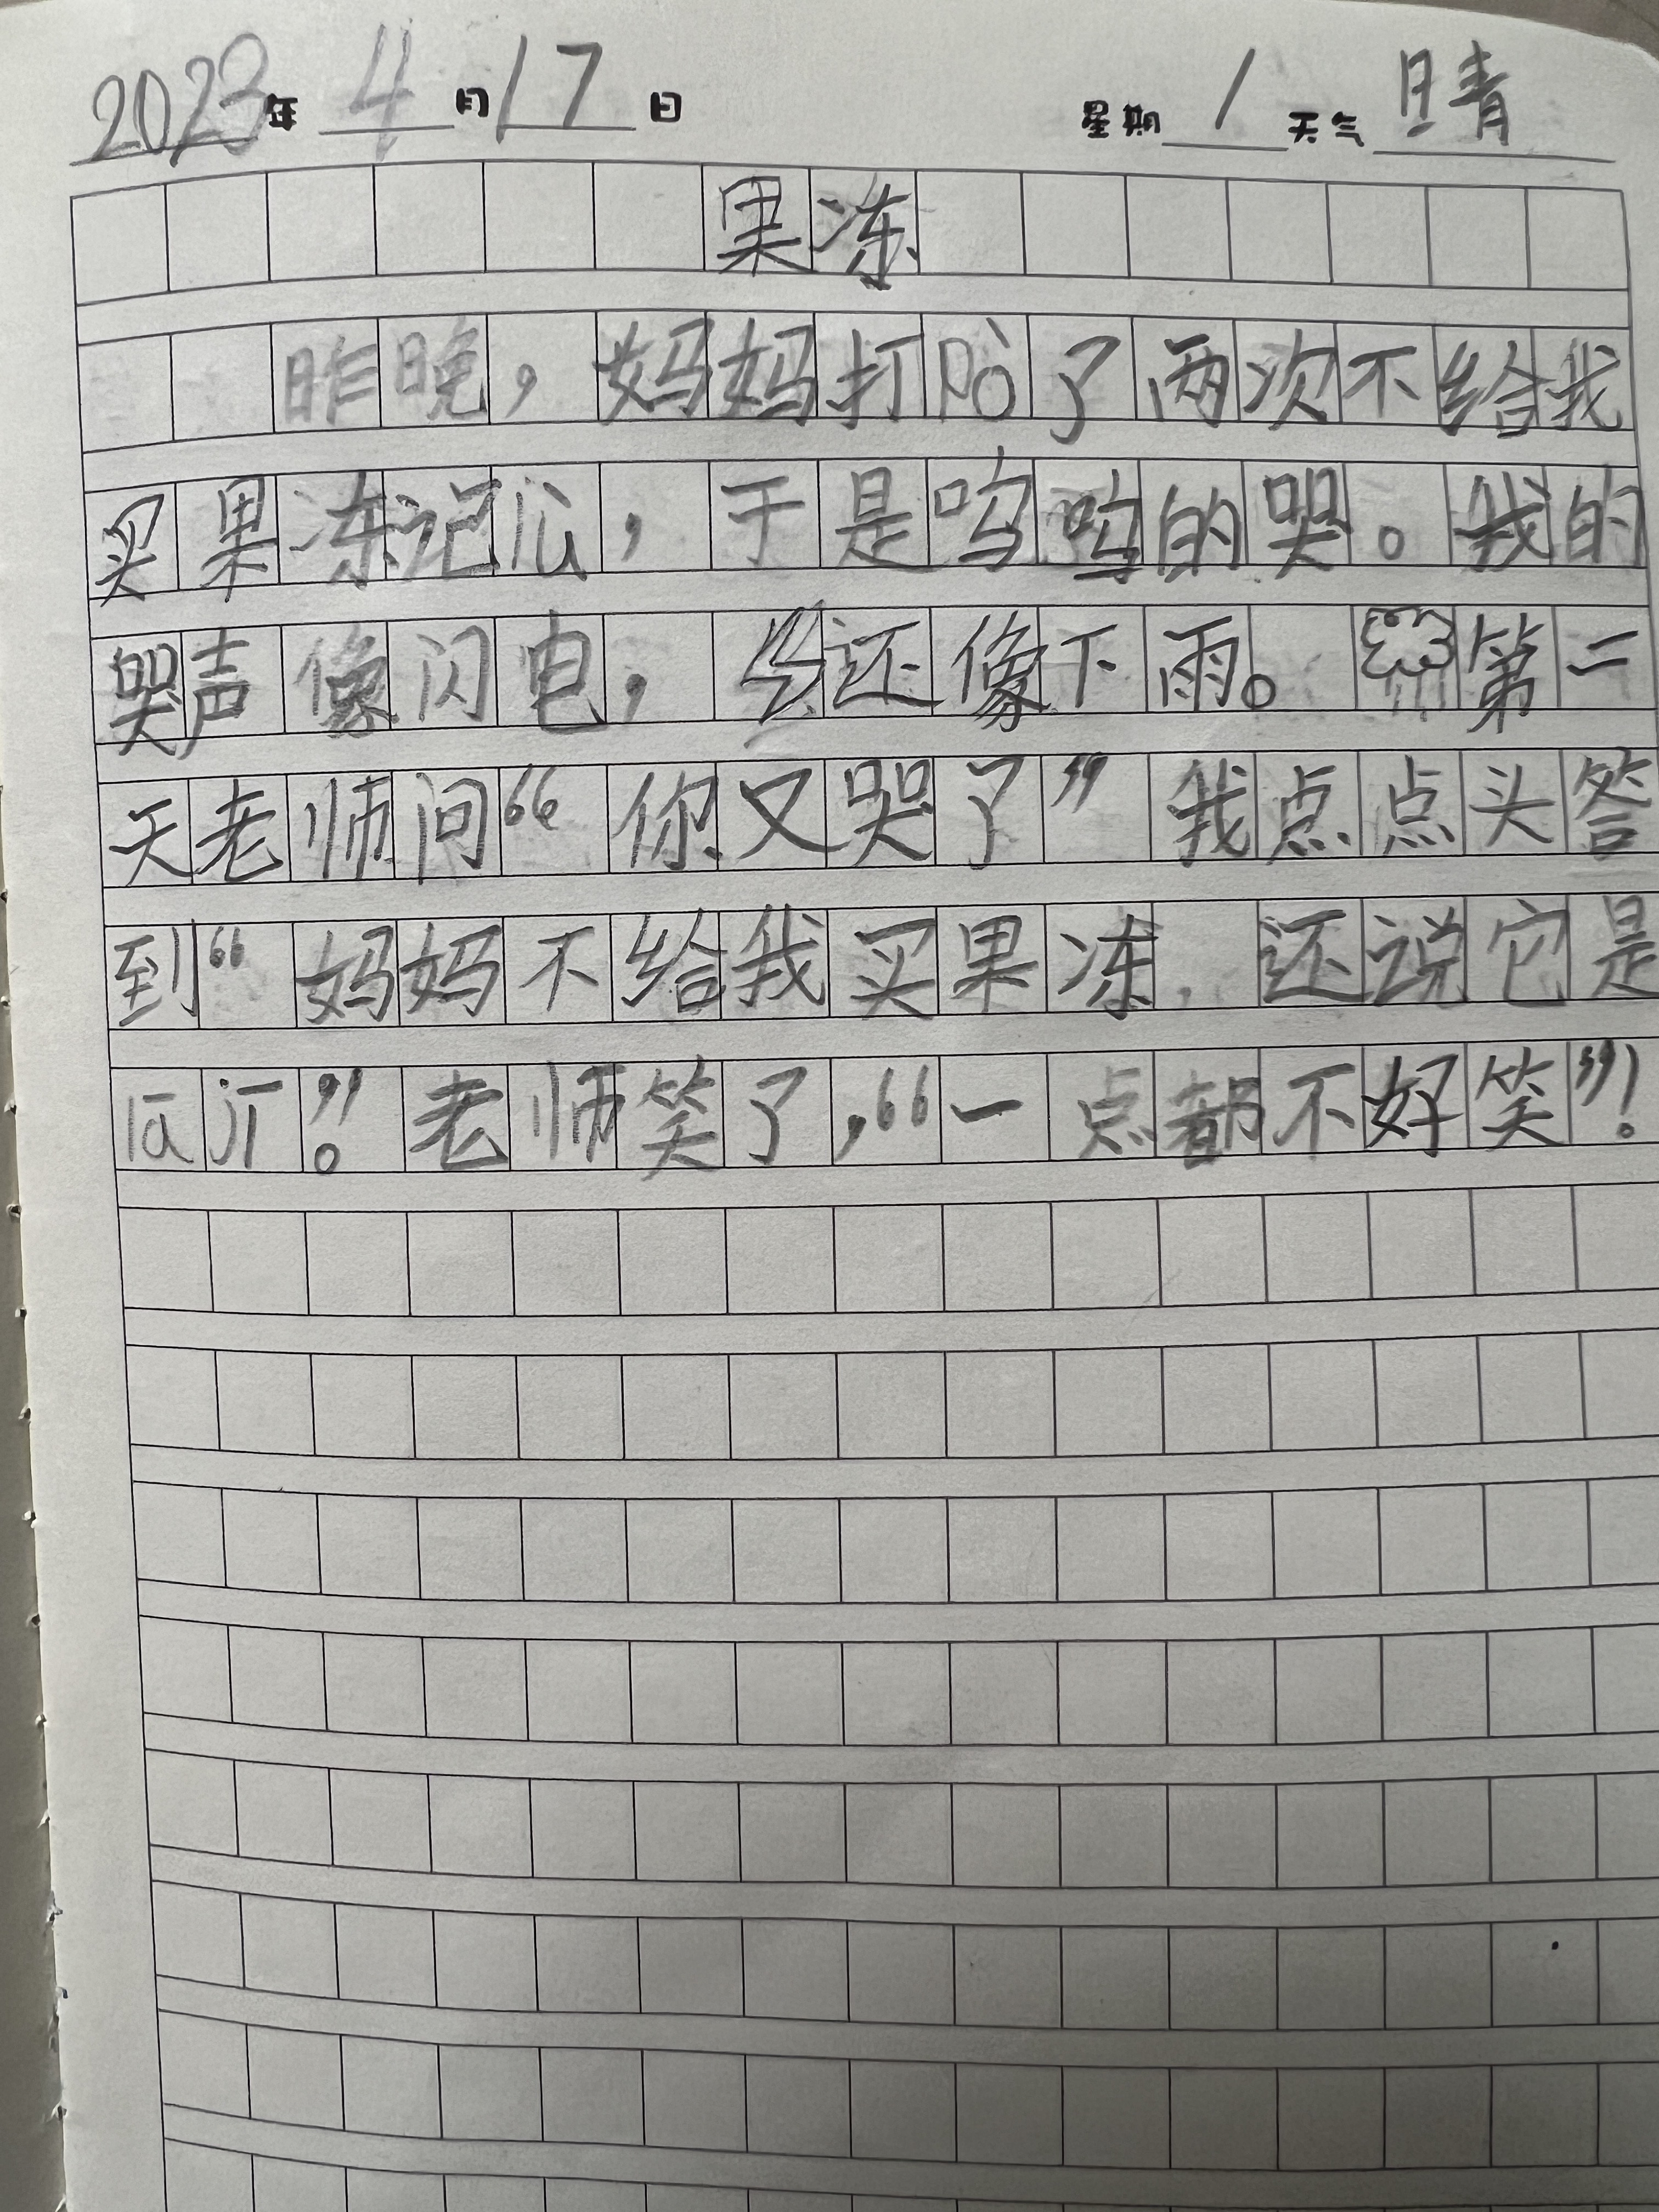 2023年 4月17日 星期1 天气晴
果冻
昨晚，妈妈打pò了两次不给我
买果冻记lù，于是呜呜的哭。我的
哭声像闪电，还像下雨。第二
天老师问“你又哭了”我点点头答
到“妈妈不给我买果冻，还说它是
lā圾”。老师笑了，“一点都不好笑”！